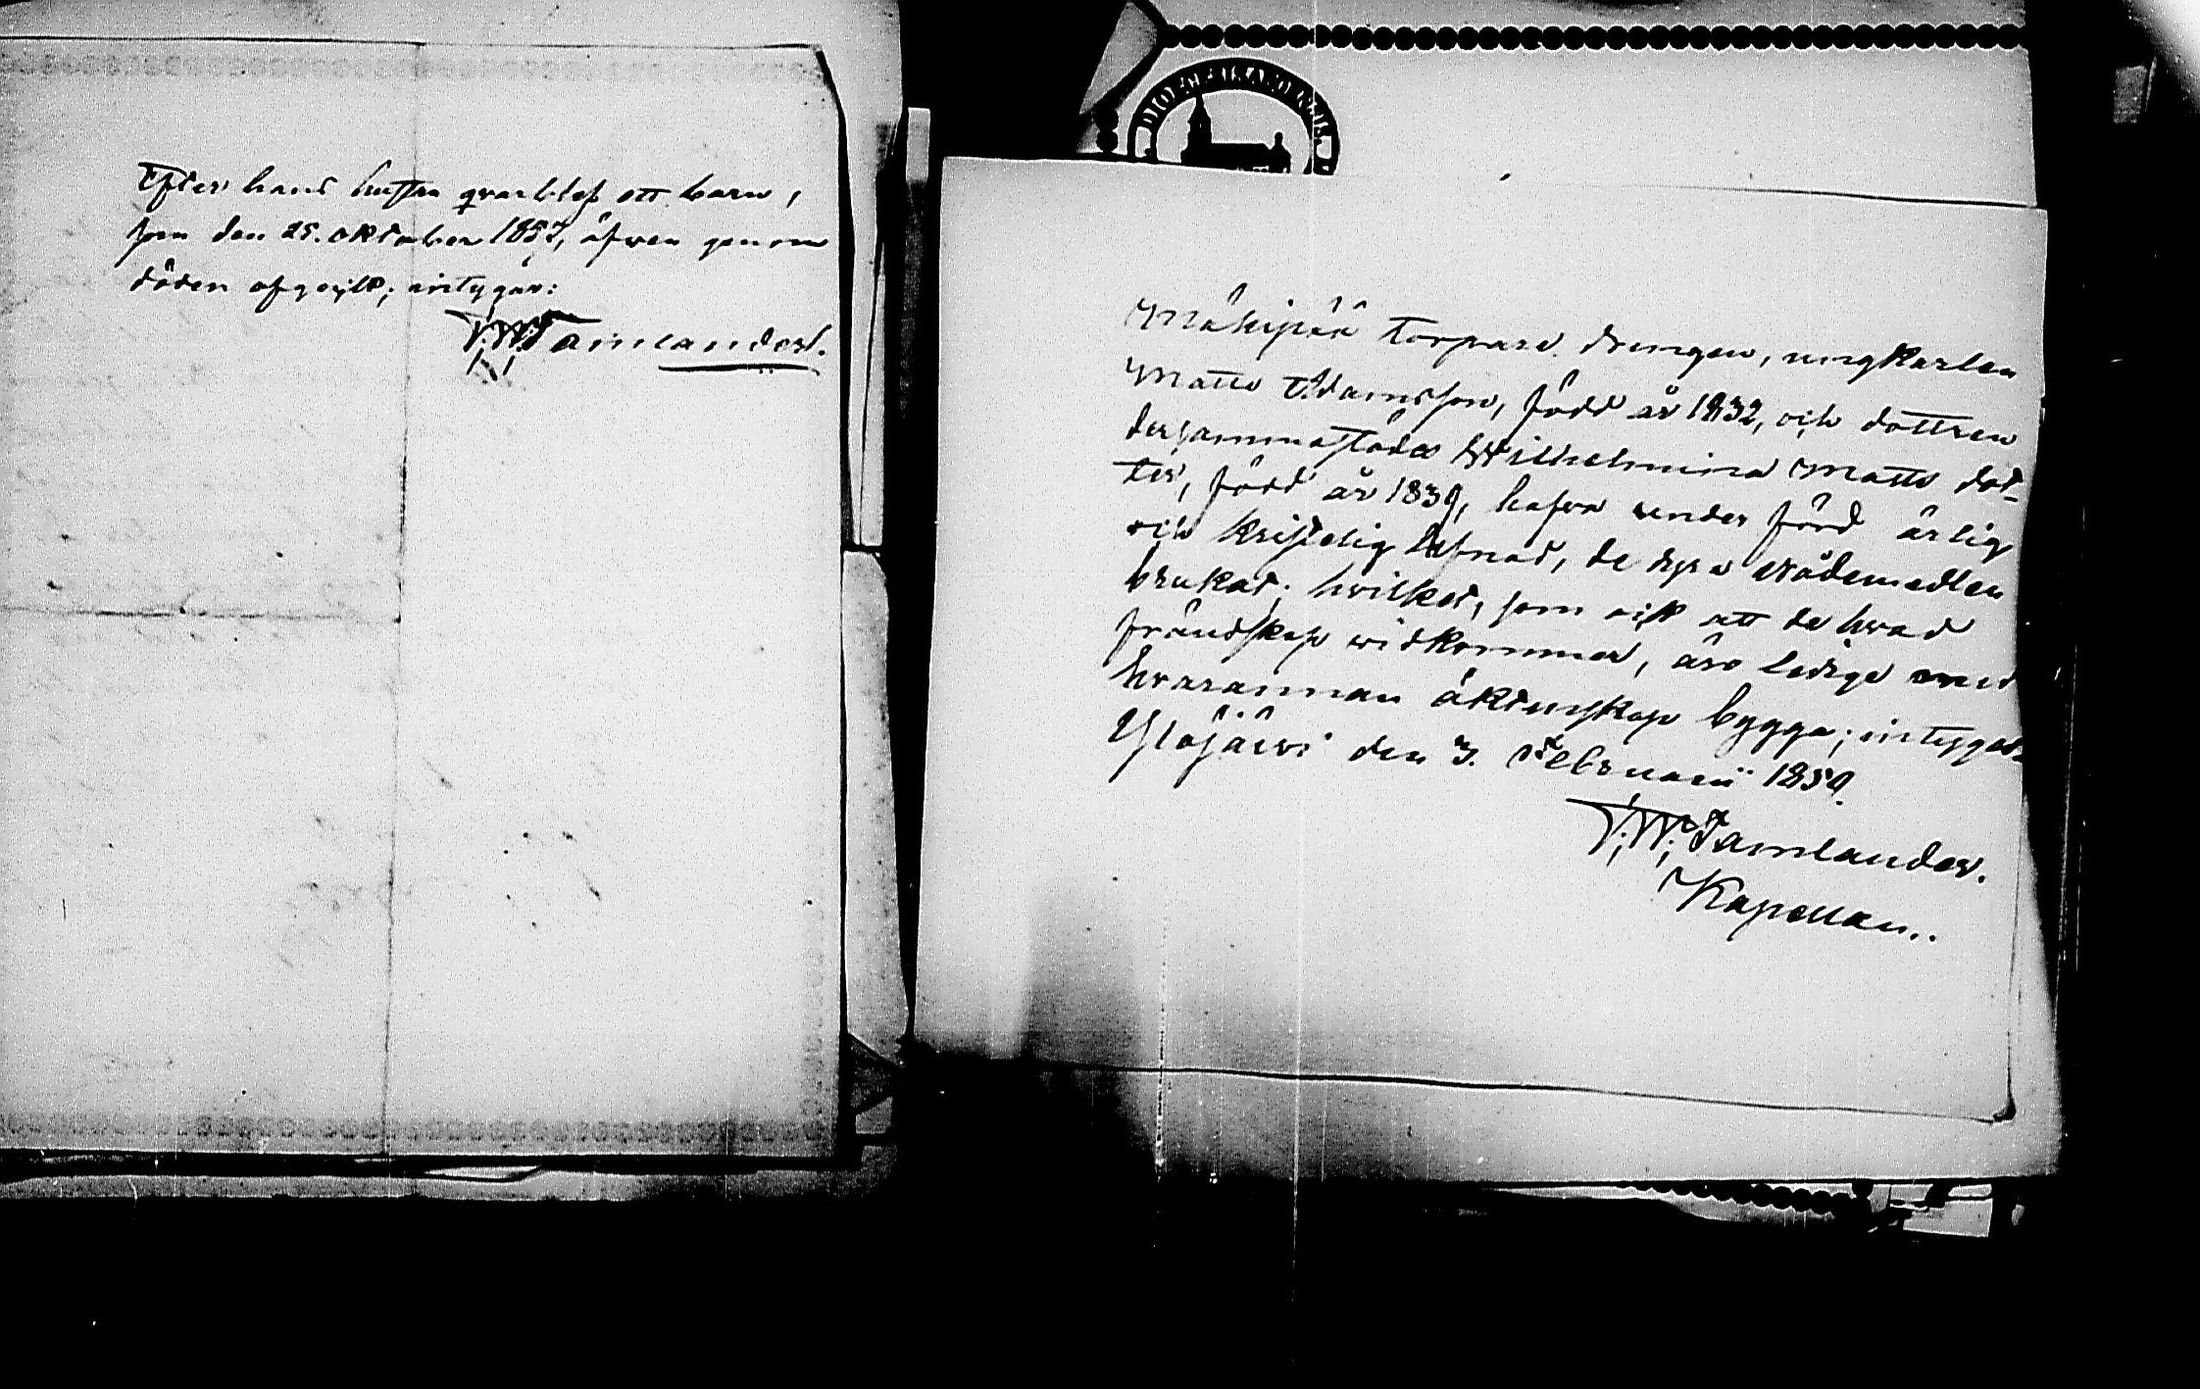 Efter hans hustru qvarblef ett barn,
som den 25. oktober 1857, äfven genom
döden afgått; intygar:
F. W. Tamlander.
DIOECES. ABOENSIS.
Mäkipää Torpare drengen, ungkarlen
Matts Adamsson, född år 1832, och dottren
dersammastädes Wilhelmina Matts dot-
ter, född år 1839, hafva under förd ärlig
och kristelig lefnad, de dyra nådemedlen
brukat; hvilket, som ock att de hvad
frändskap widkommer, äro lediga med
hvarannan äktenskap bygga; intygar
Ylöjärvi den 3. Februarii 1859.
F. W. Tamlander.
Kapellan..